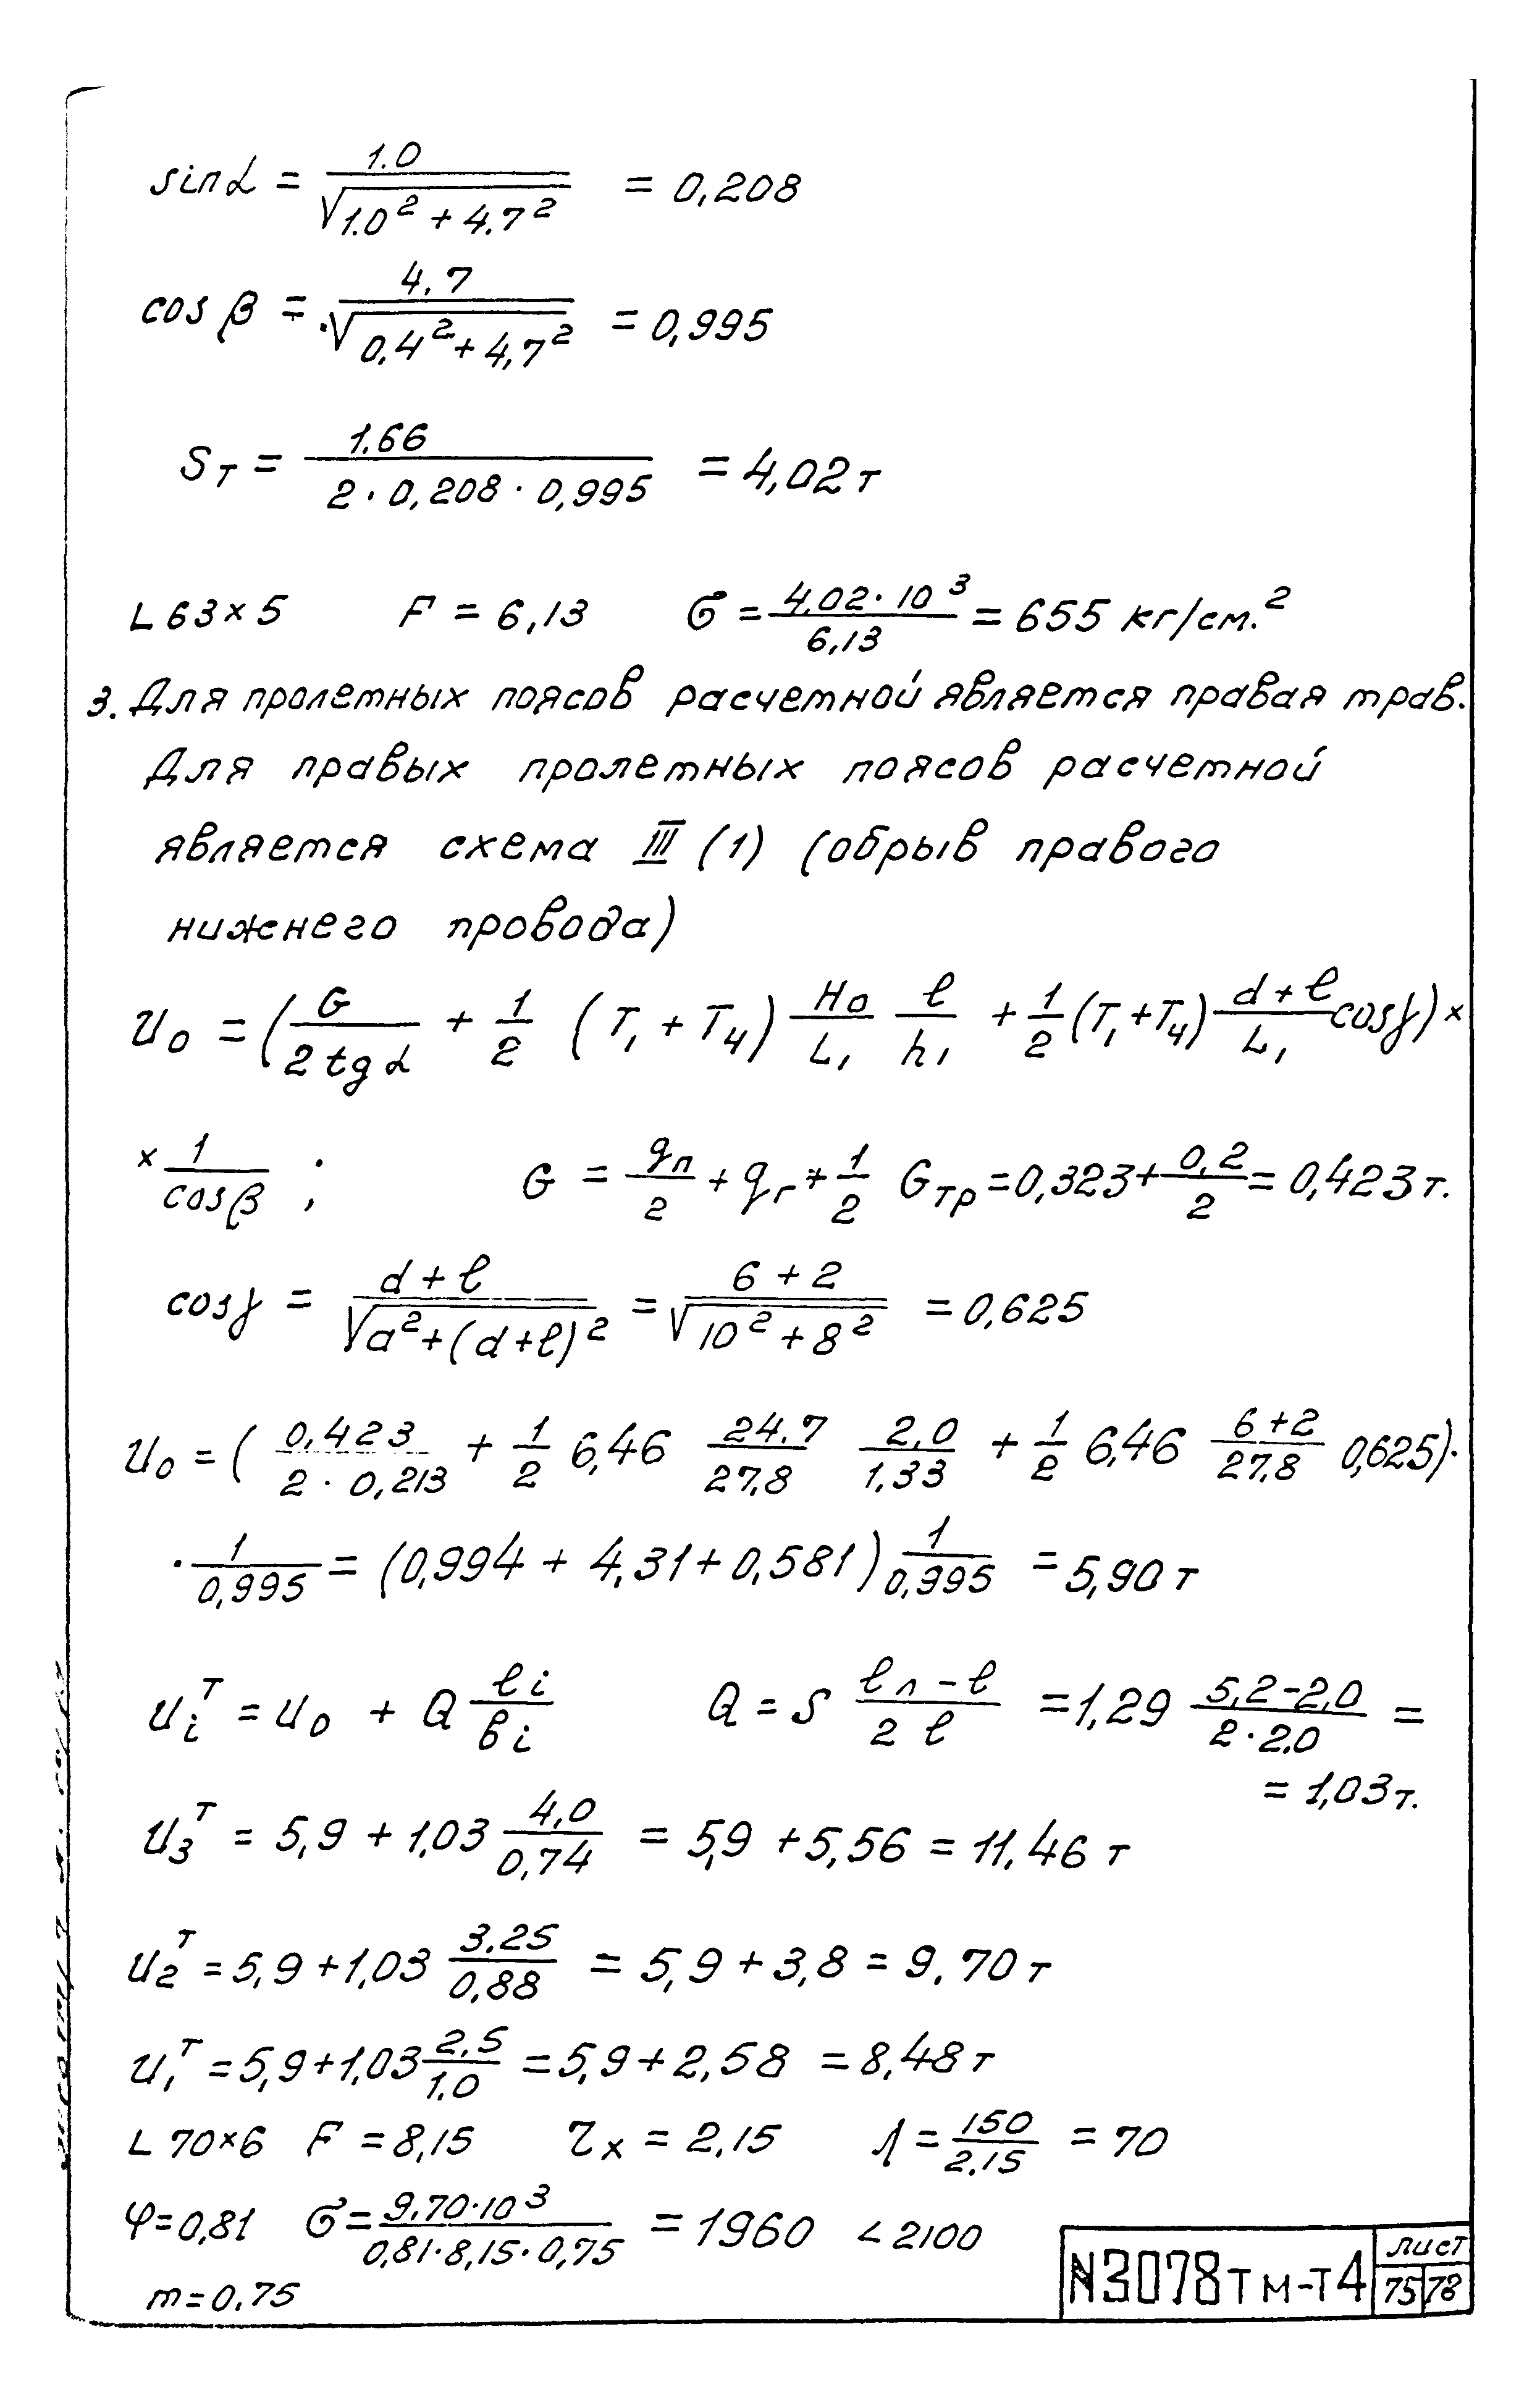 sin α = 1.0 / √(1.0² + 4.7²) = 0,208
cos β = 4,7 / √(0,4² + 4,7²) = 0,995
Sт = 1.66 / (2 · 0,208 · 0,995) = 4,02 т
L 63×5 F = 6,13 σ = 4.02·10³ / 6,13 = 655 кг/см.²
3. Для пролетных поясов расчетной является правая трав.
Для правых пролетных поясов расчетной
является схема III (1) (обрыв правого
нижнего провода)
U₀ = (G / 2 tg α + 1/2 (T₁ + T₄) H₀/L₁ ℓ/h₁ + 1/2 (T₁ + T₄) (d + ℓ)/L₁ cos γ) ×
× 1/cos β ; G = gп/2 + gг + 1/2 Gтр = 0,323 + 0,2/2 = 0,423 т.
cos γ = (d + ℓ) / √(a² + (d + ℓ)²) = (6 + 2) / √(10² + 8²) = 0,625
U₀ = (0,423 / (2 · 0,213) + 1/2 6,46 24.7/27,8 2,0/1,33 + 1/2 6,46 (6+2)/27,8 0,625) ·
· 1/0,995 = (0,994 + 4,31 + 0,581) 1/0,995 = 5,90 т
Uᵢᵀ = U₀ + Q ℓᵢ/вᵢ Q = S (ℓп - ℓ) / 2 ℓ = 1,29 (5,2-2,0) / (2 · 2.0) =
= 1,03 т.
U₃ᵀ = 5,9 + 1,03 4,0/0,74 = 5,9 + 5,56 = 11,46 т
U₂ᵀ = 5,9 + 1,03 3.25/0,88 = 5,9 + 3,8 = 9.70 т
U₁ᵀ = 5,9 + 1,03 2,5/1,0 = 5,9 + 2,58 = 8,48 т
L 70×6 F = 8,15 τx = 2,15 λ = 150/2.15 = 70
φ = 0,81 σ = 9.70·10³ / (0,81·8,15·0,75) = 1960 < 2100
m = 0,75
N3078тм-т4
лист
75 78